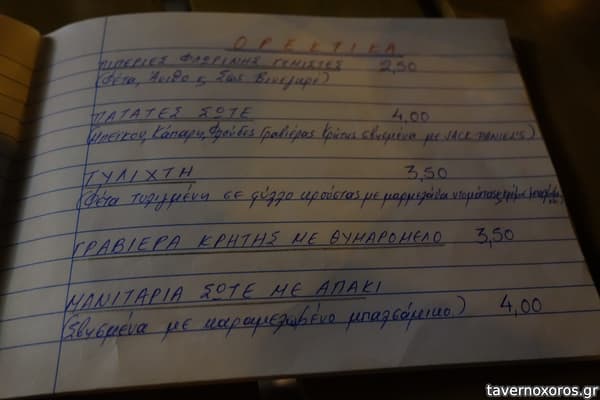 ΟΡΕΚΤΙΚΑ
ΠΙΠΕΡΙΕΣ ΦΛΩΡΙΝΗΣ ΓΕΜΙΣΤΕΣ 2,50
(Φέτα, Άνιθο & Σως Βινεγκρέ)
ΠΑΤΑΤΕΣ ΣΩΤΕ 4,00
(Μπέικον, Κάπαρη, Φλούδες Γραβιέρας Κρήτης σβησμένα με JACK DANIEL'S)
ΤΥΛΙΧΤΗ 3,50
(Φέτα τυλιγμένη σε φύλλο κρούστας με μαρμελάδα ντομάτας
ΓΡΑΒΙΕΡΑ ΚΡΗΤΗΣ ΜΕ ΘΥΜΑΡΟΜΕΛΟ 3,50
ΜΑΝΙΤΑΡΙΑ ΣΩΤΕ ΜΕ ΑΠΑΚΙ
(Σβησμένα με καραμελωμένο μπαλσάμικο) 4,00
tavernoxoros.gr